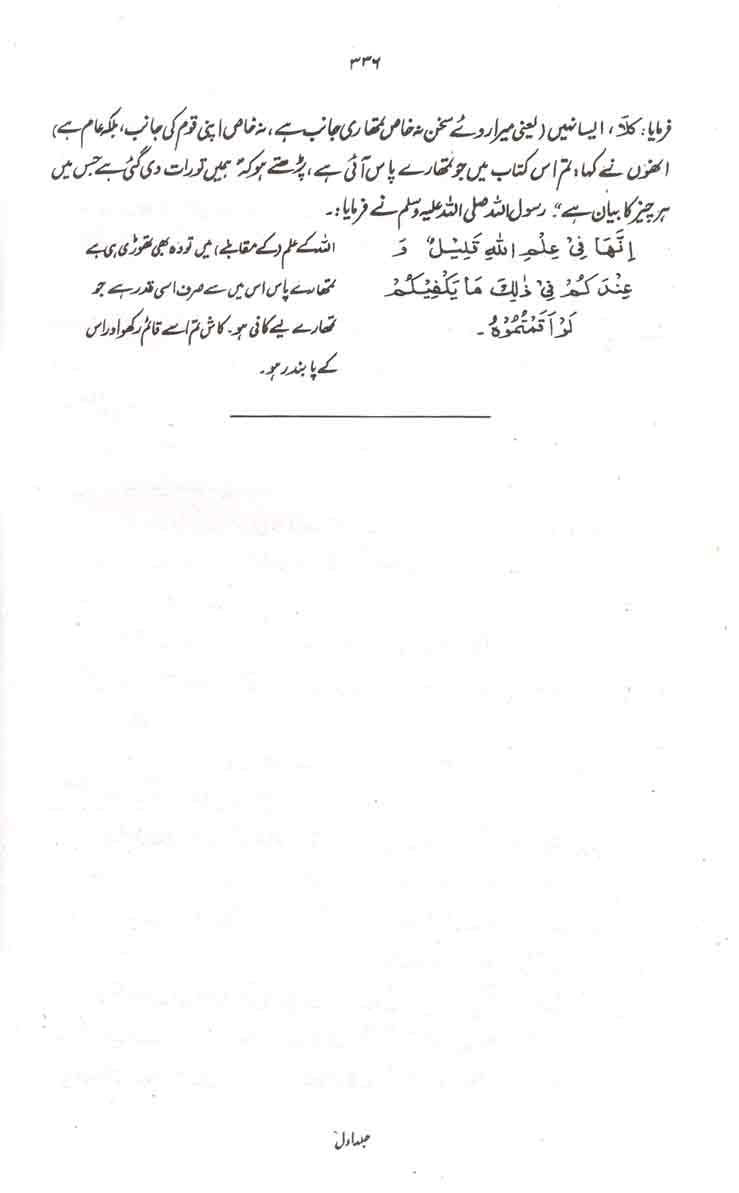 ۳۳۶
فرمایا: کلّا، ایسا نہیں (یعنی میرا روئے سخن نہ خاص تمھاری جانب ہے، نہ خاص اپنی قوم کی جانب، بلکہ عام ہے)
انھوں نے کہا: تم اس کتاب میں جو تمھارے پاس آئی ہے، پڑھتے ہو کہ "ہمیں تورات دی گئی ہے جس میں
ہر چیز کا بیان ہے"۔ رسول اللہ صلی اللہ علیہ وسلم نے فرمایا:۔
اِنَّهَا فِیْ عِلْمِ اللهِ قَلِیْلٌ وَ
عِنْدَ كُمْ فِیْ ذٰلِكَ مَا یَكْفِیْكُمْ
لَوْ اَقَمْتُمُوْهُ۔
اللہ کے علم (کے مقابلے) میں تو وہ بھی تھوڑی ہی ہے
تمھارے پاس اس میں سے صرف اسی قدر ہے جو
تمھارے لیے کافی ہو۔ کاش تم اسے قائم رکھو اور اس
کے پابند رہو۔
جلد اول